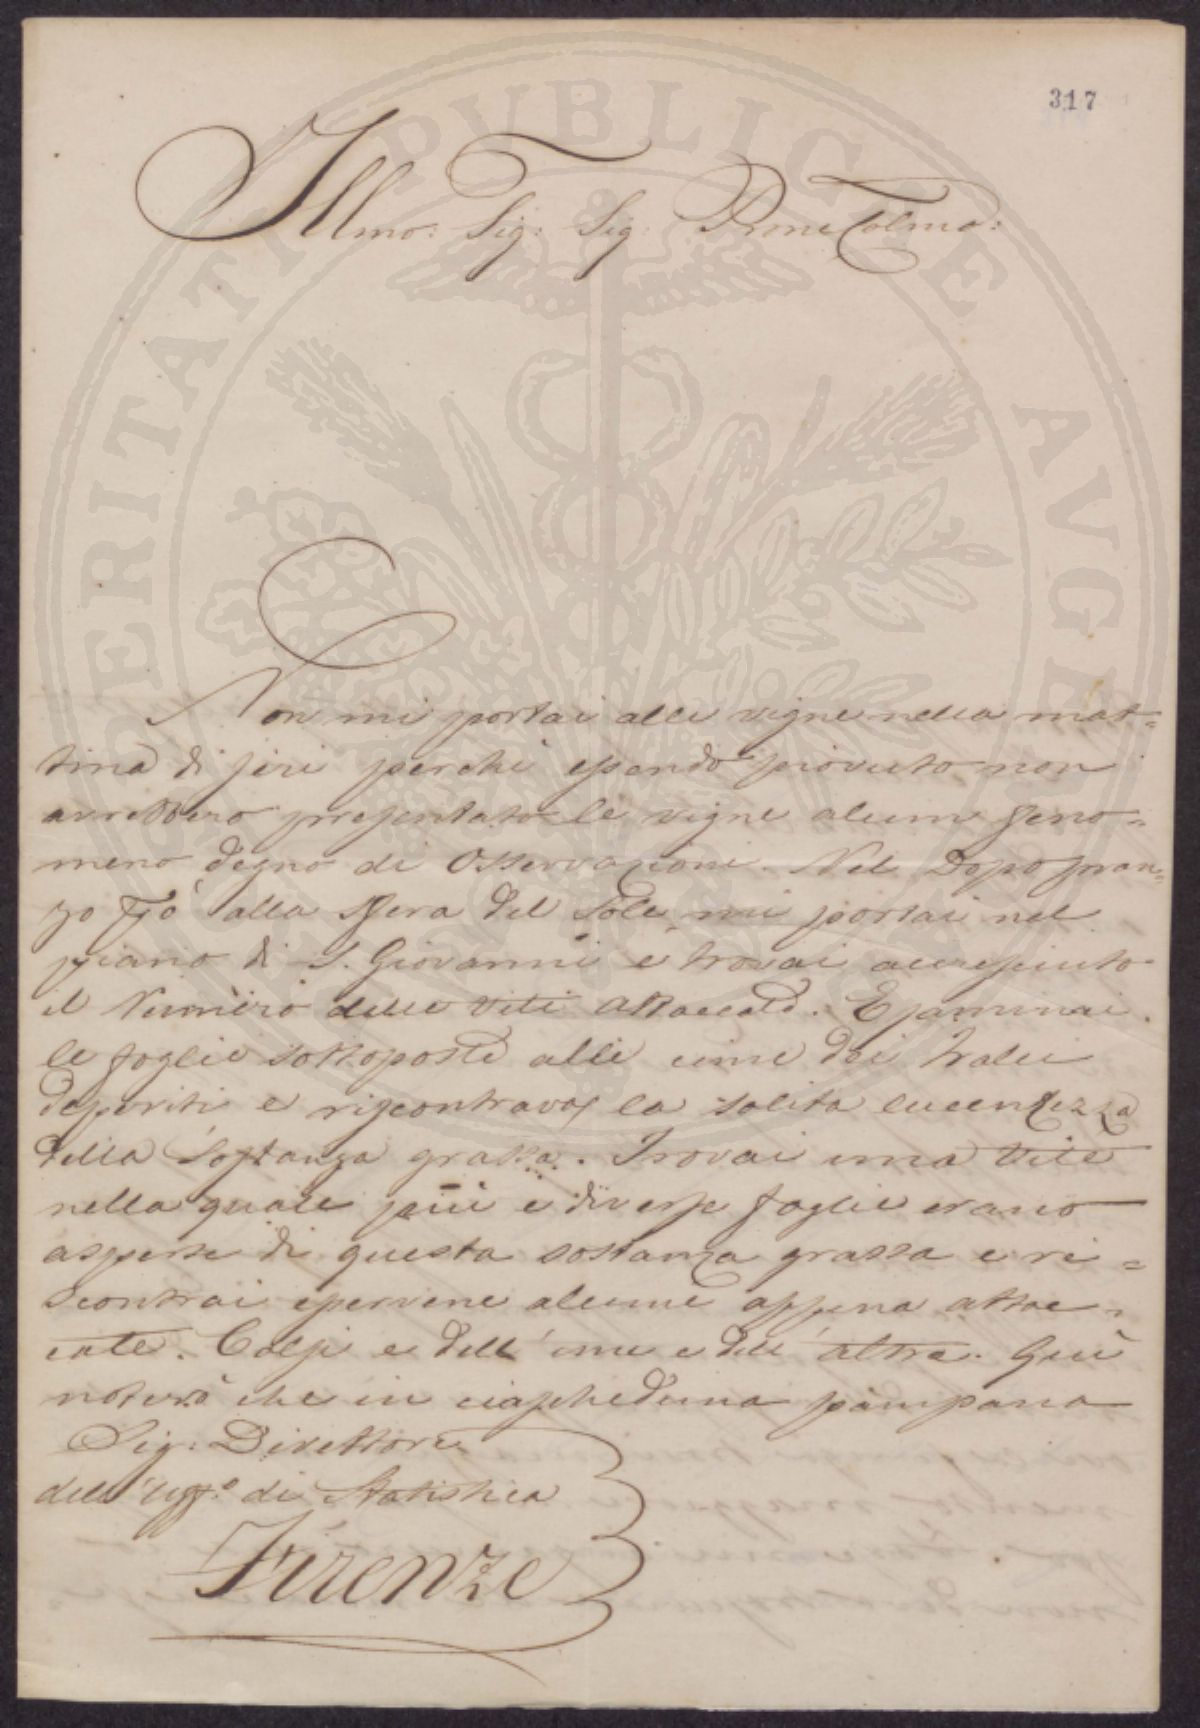 317
Illmo: Sig: Sig: Prone Colmo:
Non mi portai alle vigne nella mat=
tina di jeri perchè essendo piovuto non
avrebbero presentato le vigne alcun feno=
meno degno di Osservazione. Nel Dopo pran=
zo alla Sfera del Sole mi portai nel
piano di S. Giovanni e trovai accresciuto
il Numero delle viti attaccate. Esaminai
le foglie sottoposte alle cime dei tralci
deperiti e riscontravasi la solita lucentezza
della Sostanza grassa. Trovai una vite
nella quale più e diverse foglie erano
asperse di questa sostanza grassa e ri=
scontrai esservene alcune appena attac=
cate. Colsi e dell' une e dell' altre. Quì
noterò che in ciascheduna pampana
Sig: Direttore
dell' Uff.º di Statistica
Firenze
PERITATI PVBLICAE AVGENDAE